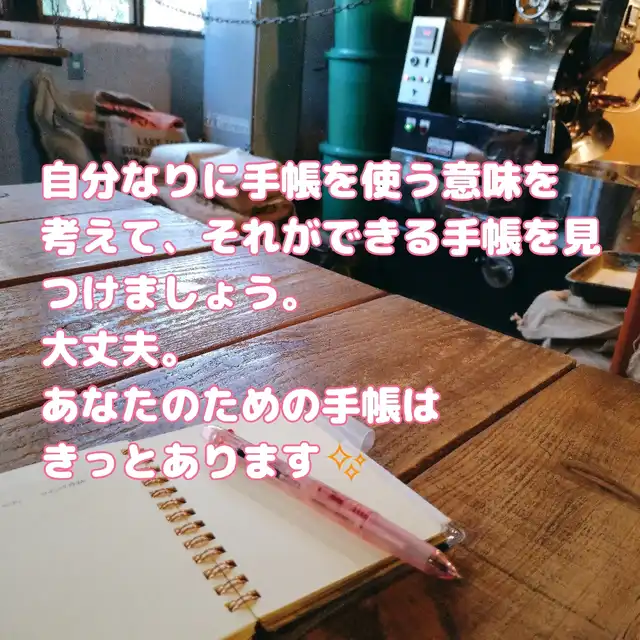 自分なりに手帳を使う意味を
考えて、それができる手帳を見
つけましょう。
大丈夫。
あなたのための手帳は
きっとあります✨